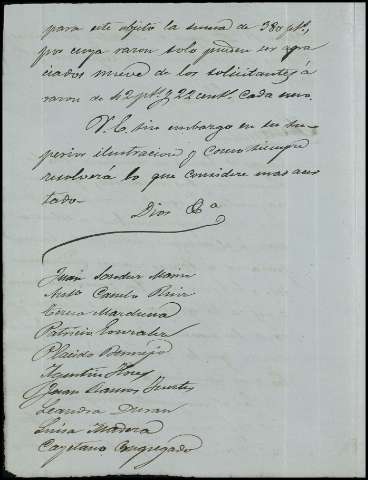 para este objeto la suma de 380 pts,
por cuya razon solo pueden ser agra-
ciados nueve de los solicitantes á
razon de 42 pts. y 22 cents. cada uno.
V. E. sin embargo en su su-
perior ilustracion y como siempre
resolverá lo que considere mas acer
tado-
Dios &a
Juan
Teresa Marduena
Patricia Gonzalez
Placido Bermejo
Agustin Flores
Juan Ramos Fuertes
Leandra Duran
Luisa Madera
Cayetano Congregado